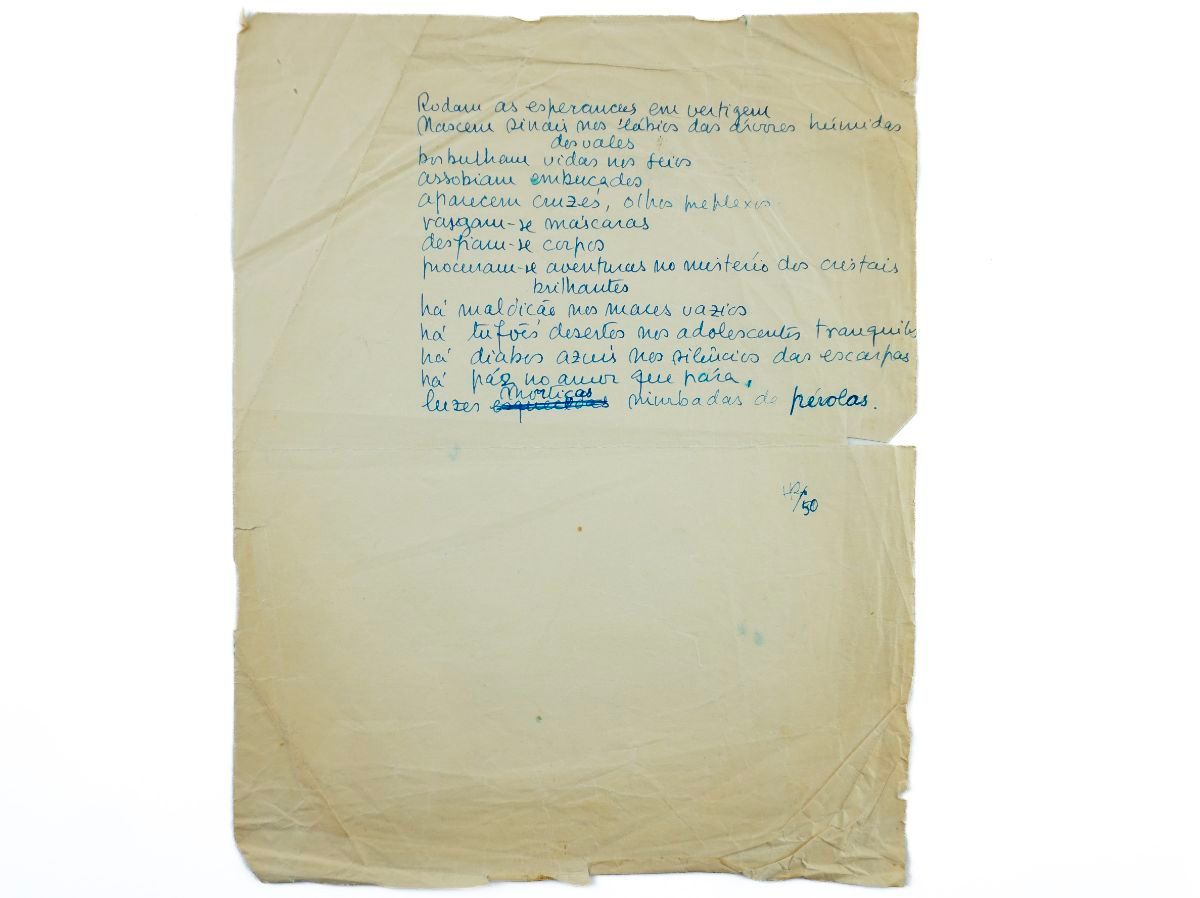 Rodam as esperances em vertigem
Nascem sinais nos lábios das árvores húmidas
dos vales
borbulham vidas nos seios
assobiam embuçados
aparecem cruzes, olhos perplexos
rasgam-se máscaras
desfiam-se corpos
procuram-se aventuras no mistério dos cristais
brilhantes
há maldicão nos mares vazios
há tufões desertos nos adolescentes tranquilos
há diabos azuis nos silêncios das escarpas
há páz no amor que pára,
mortiças
luzes esquecidas nimbadas de pérolas.
50